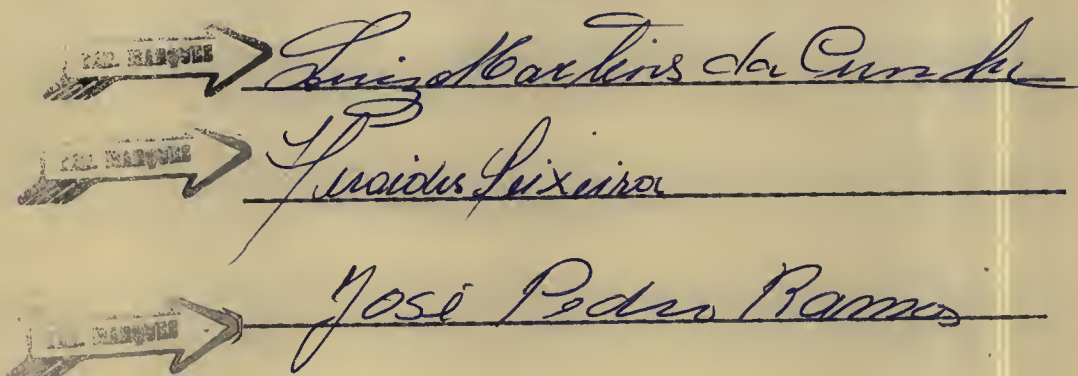 TAB. MARQUES
Luiz Martins da Cunha
TAB. MARQUES
Teixeira
TAB. MARQUES
José Pedro Ramos